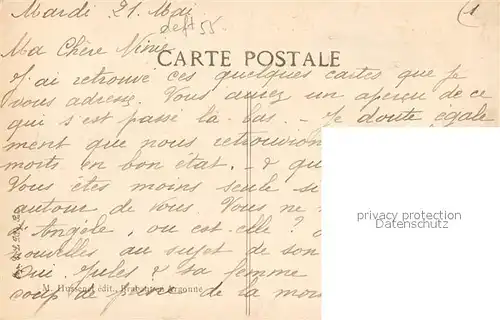 Mardi 21. Mai
dept 55
1
Ma Chère Ninie
CARTE POSTALE
J'ai retrouvé ces quelques cartes que je
vous adresse. Vous aurez un aperçu de ce
qui s'est passé là-bas. - Je doute égale
ment que nous retrouvion
morts en bon état. - & qu
Vous êtes moins seule si
autour de vous. Vous ne
d'Angèle, où est-elle?
nouvelles au sujet de son
Jules & sa femme
coup de peine de la mor
M. Husson, édit., Brabant-en-Argonne
privacy protection
Datenschutz